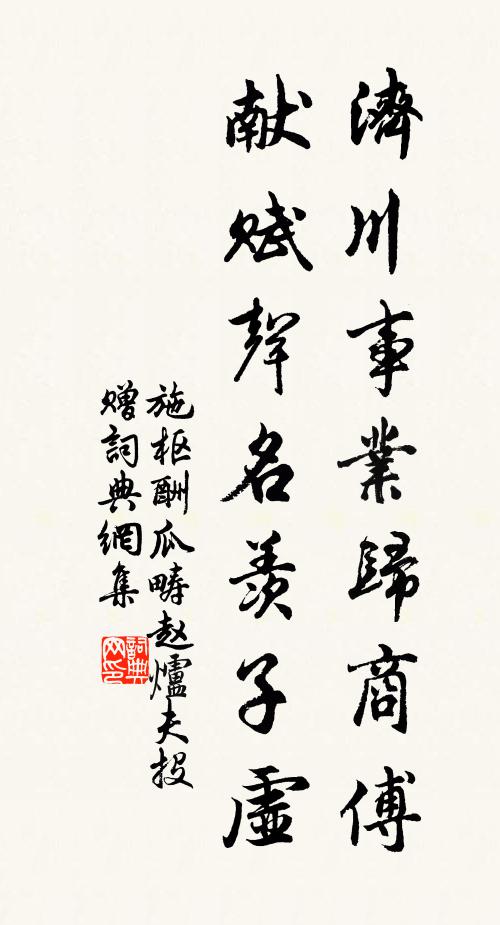 濟川事業歸商傅
献賦聲名羨子虛
施枢酬瓜疇赵爐夫投
赠詞典網集
詞典網印